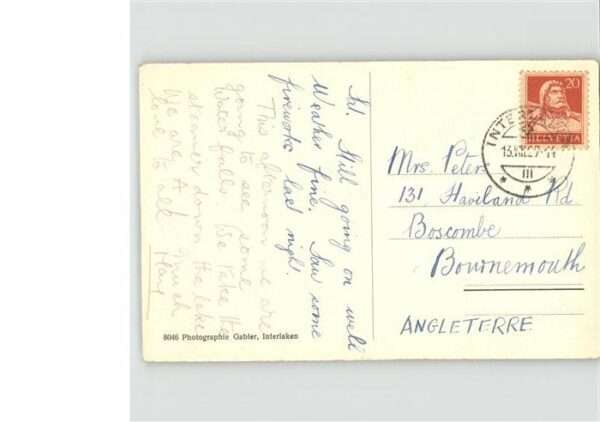 Sat. Still going on well
Weather fine. Saw some
fireworks last night.
This afternoon we are
going to see some
Water falls We take the
steamer down the lake
We are A
love to all
8046 Photographie Gabler, Interlaken
20
HELVETIA
INTER
III
Mrs. Peters
131 Haviland Rd
Boscombe
Bournemouth
ANGLETERRE